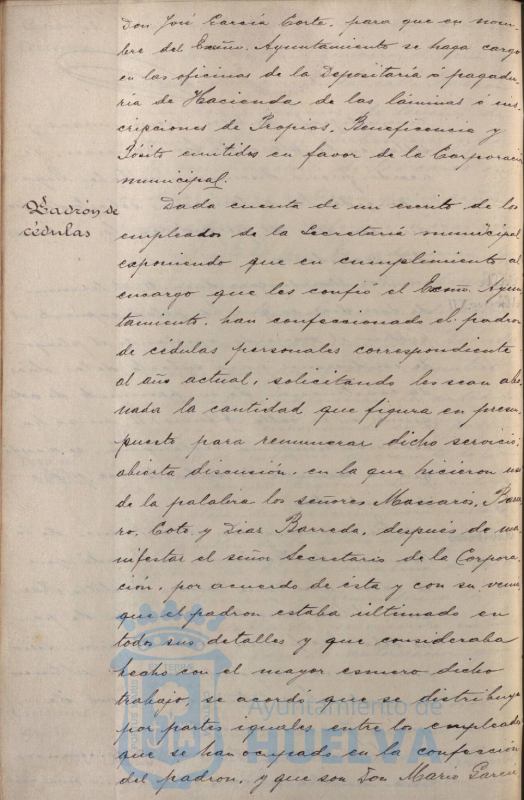 Don José García Corte, para que en nom-
bre del Excmo. Ayuntamiento se haga cargo
en las oficinas de la Depositaría ó pagadu-
ría de Hacienda de las láminas ó ins-
cripciones de Propios, Beneficencia y
Pósito emitidos en favor de la Corporació
municipal.
Padrón de
cédulas
Dada cuenta de un escrito de los
empleados de la Secretaría municipal
exponiendo que en cumplimiento al
encargo que les confió el Excmo. Ayun
tamiento, han confeccionado el padron
de cédulas personales correspondiente
al año actual, solicitando les sean abo
nada la cantidad que figura en presu
puesto para remunerar dicho servicio;
abierta discusión, en la que hicieron uso
de la palabra los señores Mascarós,
ro, Coto y Diaz Barreda, después de ma
nifestar el señor Secretario de la Corpora-
ción, por acuerdo de ésta y con su venia
que el padron estaba ultimado en
todos sus detalles y que consideraba
hecho con el mayor esmero dicho
trabajo, se acordó que se distribuya
por partes iguales entre los empleados
que se han ocupado en la confección
del padron, y que son Don Mario García
Ayuntamiento de
HUELVA